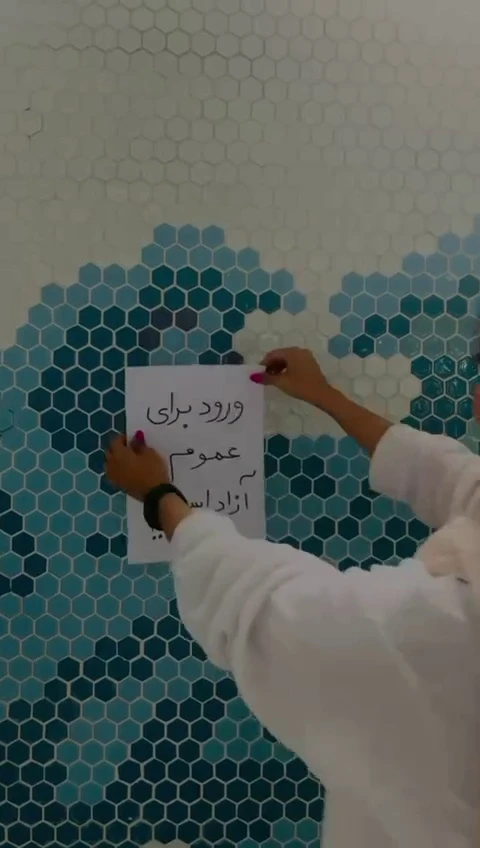 ورود برای
عموم
آزاد